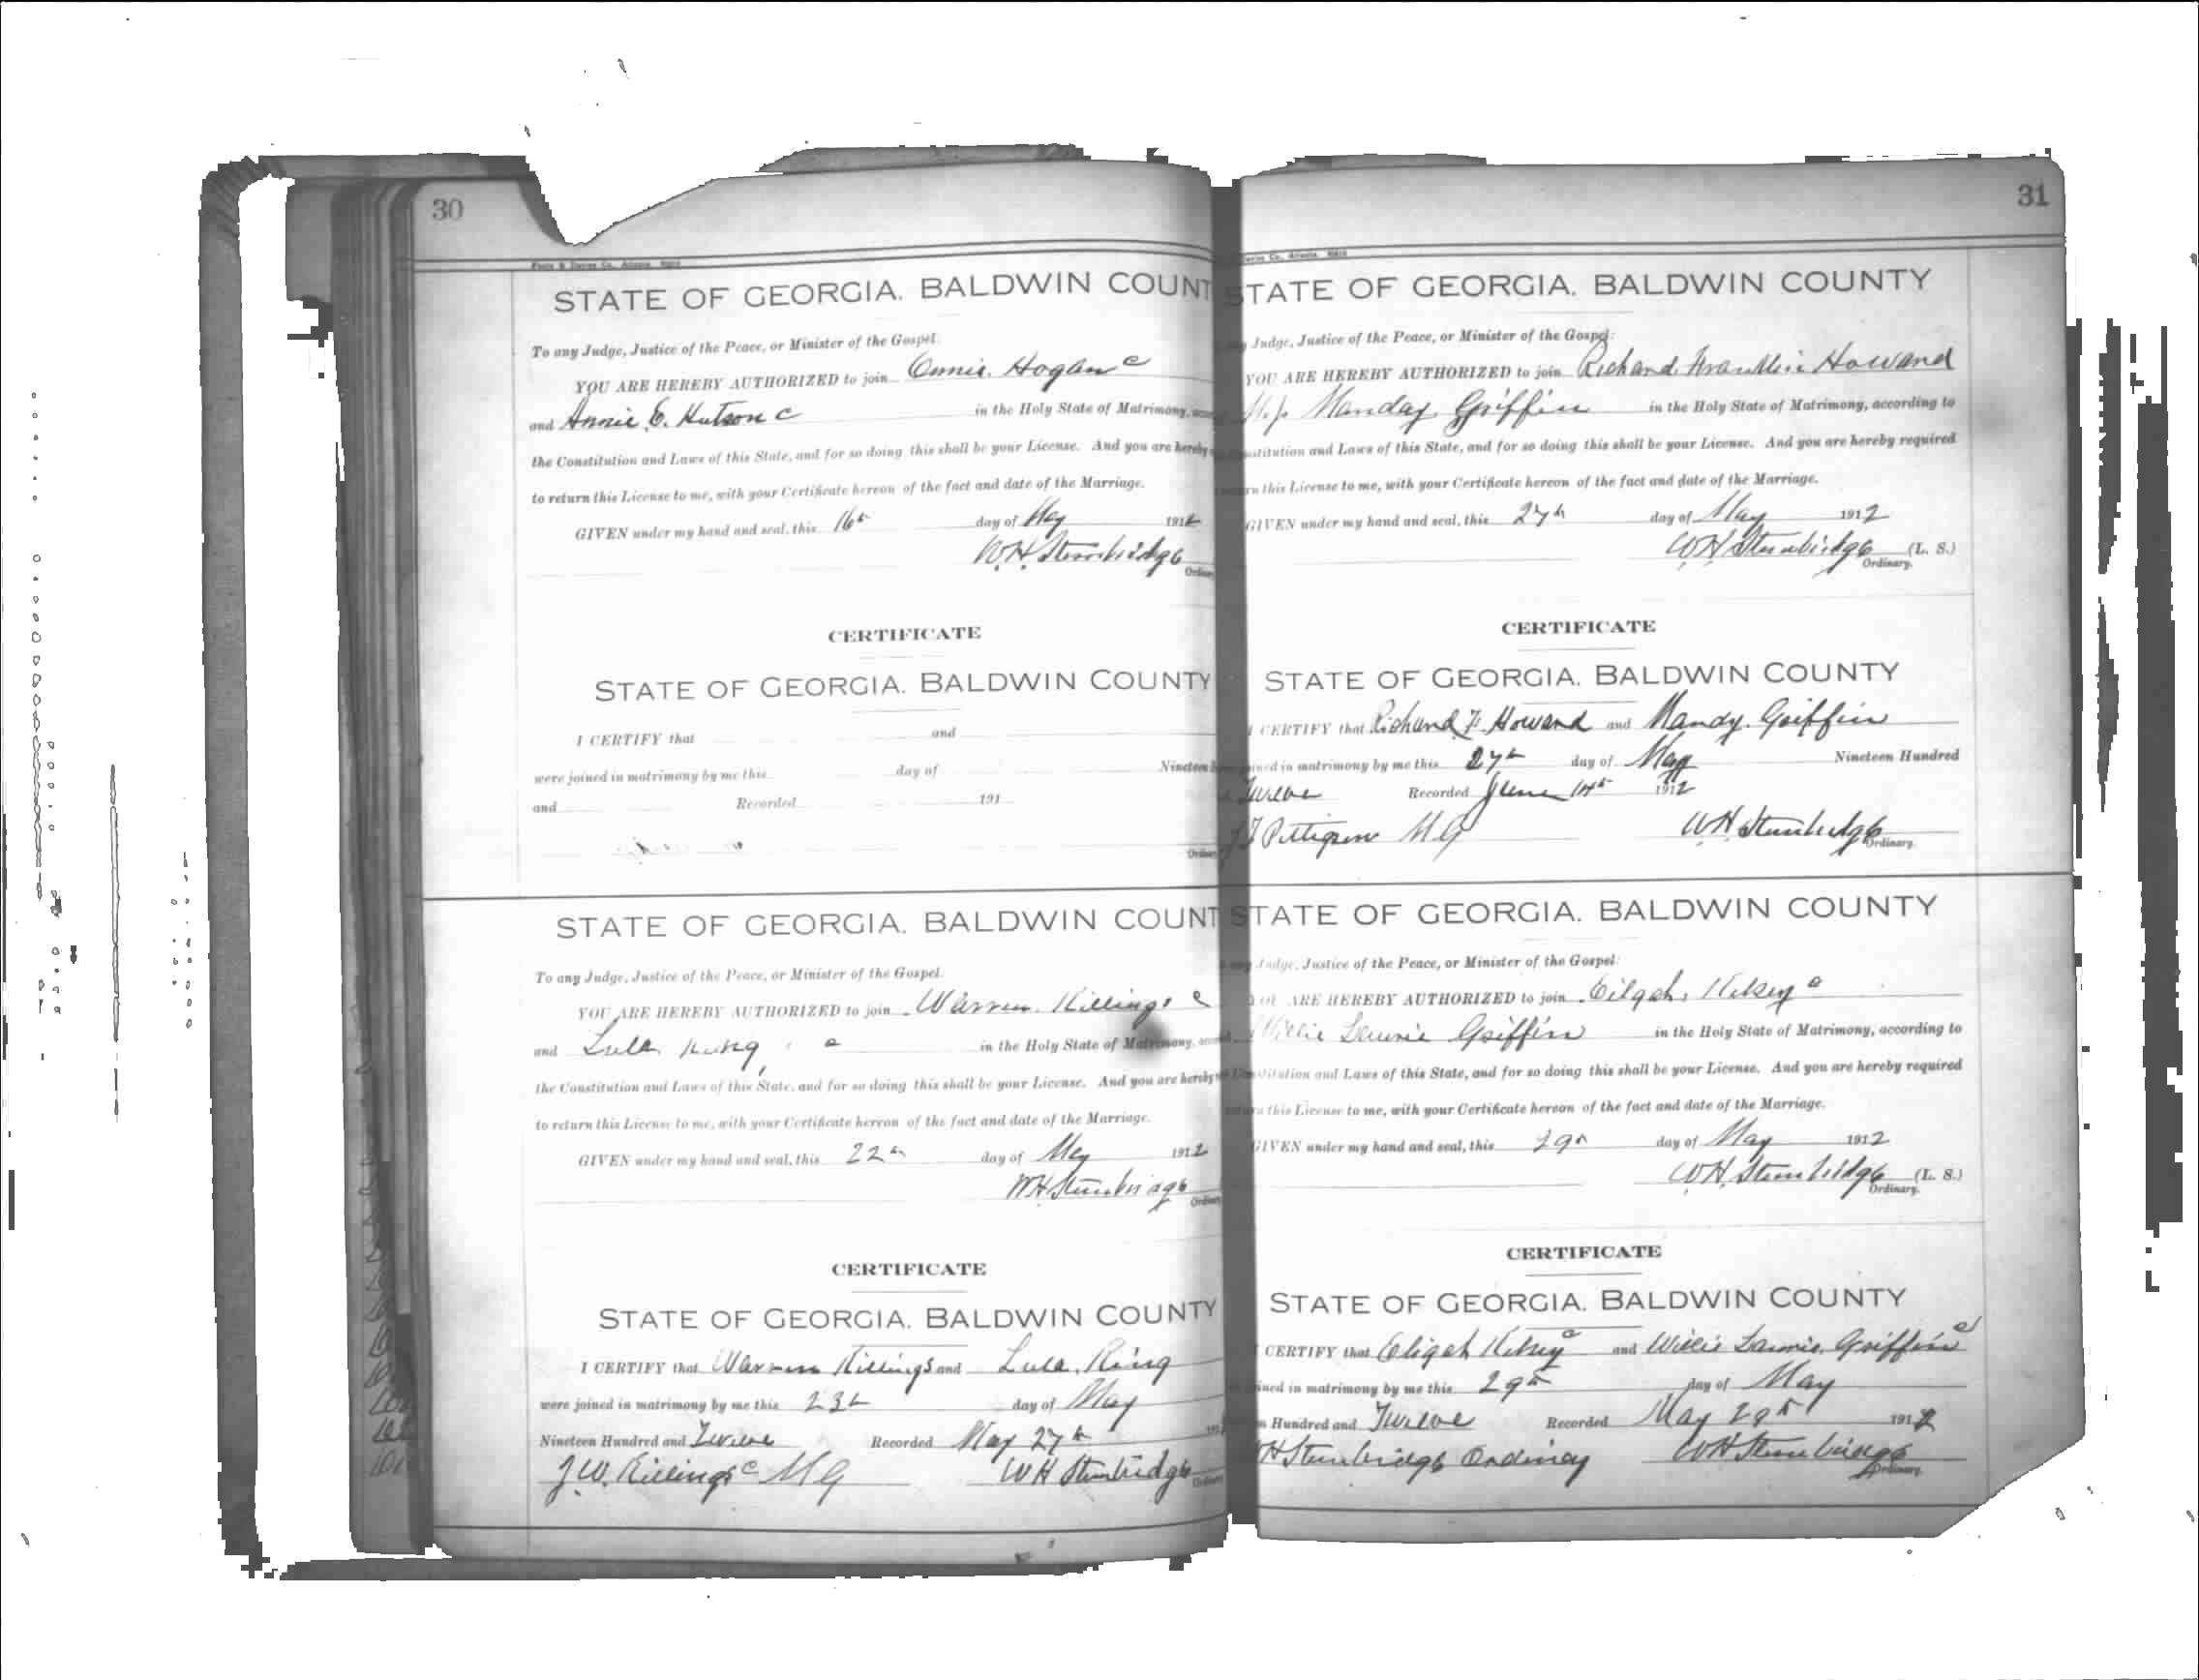 30
STATE OF GEORGIA. BALDWIN COUNT
To any Judge, Justice of the Peace, or Minister of the Gospel:
YOU ARE HEREBY AUTHORIZED to join Hogan c
and Annie E. Hutson c in the Holy State of Matrimony,
the Constitution and Laws of this State, and for so doing this shall be your License. And you are hereby
to return this License to me, with your Certificate hereon of the fact and date of the Marriage.
GIVEN under my hand and seal, this 16th day of May 1912
W.H. Stembridge
CERTIFICATE
STATE OF GEORGIA. BALDWIN COUNTY
I CERTIFY that and
were joined in matrimony by me this day of Nineteen
and Recorded 191
STATE OF GEORGIA. BALDWIN COUNT
To any Judge, Justice of the Peace, or Minister of the Gospel:
YOU ARE HEREBY AUTHORIZED to join Warren Killings c
and Lula King c in the Holy State of Matrimony,
the Constitution and Laws of this State, and for so doing this shall be your License. And you are hereby
to return this License to me, with your Certificate hereon of the fact and date of the Marriage.
GIVEN under my hand and seal, this 22 day of May 1912
WH Stembridge
CERTIFICATE
STATE OF GEORGIA. BALDWIN COUNTY
I CERTIFY that Warren Killings and Lula King
were joined in matrimony by me this 23 day of May
Nineteen Hundred and Twelve Recorded May 27th
J.W. Killings c M G WH Stembridge
31
STATE OF GEORGIA. BALDWIN COUNTY
Judge, Justice of the Peace, or Minister of the Gospel:
YOU ARE HEREBY AUTHORIZED to join Richard Franklin Howard
Manday Griffin in the Holy State of Matrimony, according to
and Laws of this State, and for so doing this shall be your License. And you are hereby required
this License to me, with your Certificate hereon of the fact and date of the Marriage.
GIVEN under my hand and seal, this 27th day of May 1912
W.H. Stembridge (L. S.)
Ordinary.
CERTIFICATE
STATE OF GEORGIA. BALDWIN COUNTY
I CERTIFY that Richard F. Howard and Mandy Griffin
in matrimony by me this 27th day of May Nineteen Hundred
Twelve Recorded June 14th 1912
Pettigrew M G W.H. Stembridge
Ordinary.
STATE OF GEORGIA. BALDWIN COUNTY
Judge, Justice of the Peace, or Minister of the Gospel:
ARE HEREBY AUTHORIZED to join Kelsey c
Willie Griffin in the Holy State of Matrimony, according to
and Laws of this State, and for so doing this shall be your License. And you are hereby required
this License to me, with your Certificate hereon of the fact and date of the Marriage.
GIVEN under my hand and seal, this 29th day of May 1912
W.H. Stembridge (L. S.)
Ordinary.
CERTIFICATE
STATE OF GEORGIA. BALDWIN COUNTY
CERTIFY that Eligah Kelsey c and Willie Griffin c
in matrimony by me this 29th day of May
Hundred and Twelve Recorded May 29th 1912
WH Stembridge Ordinary WH Stembridge
Ordinary.